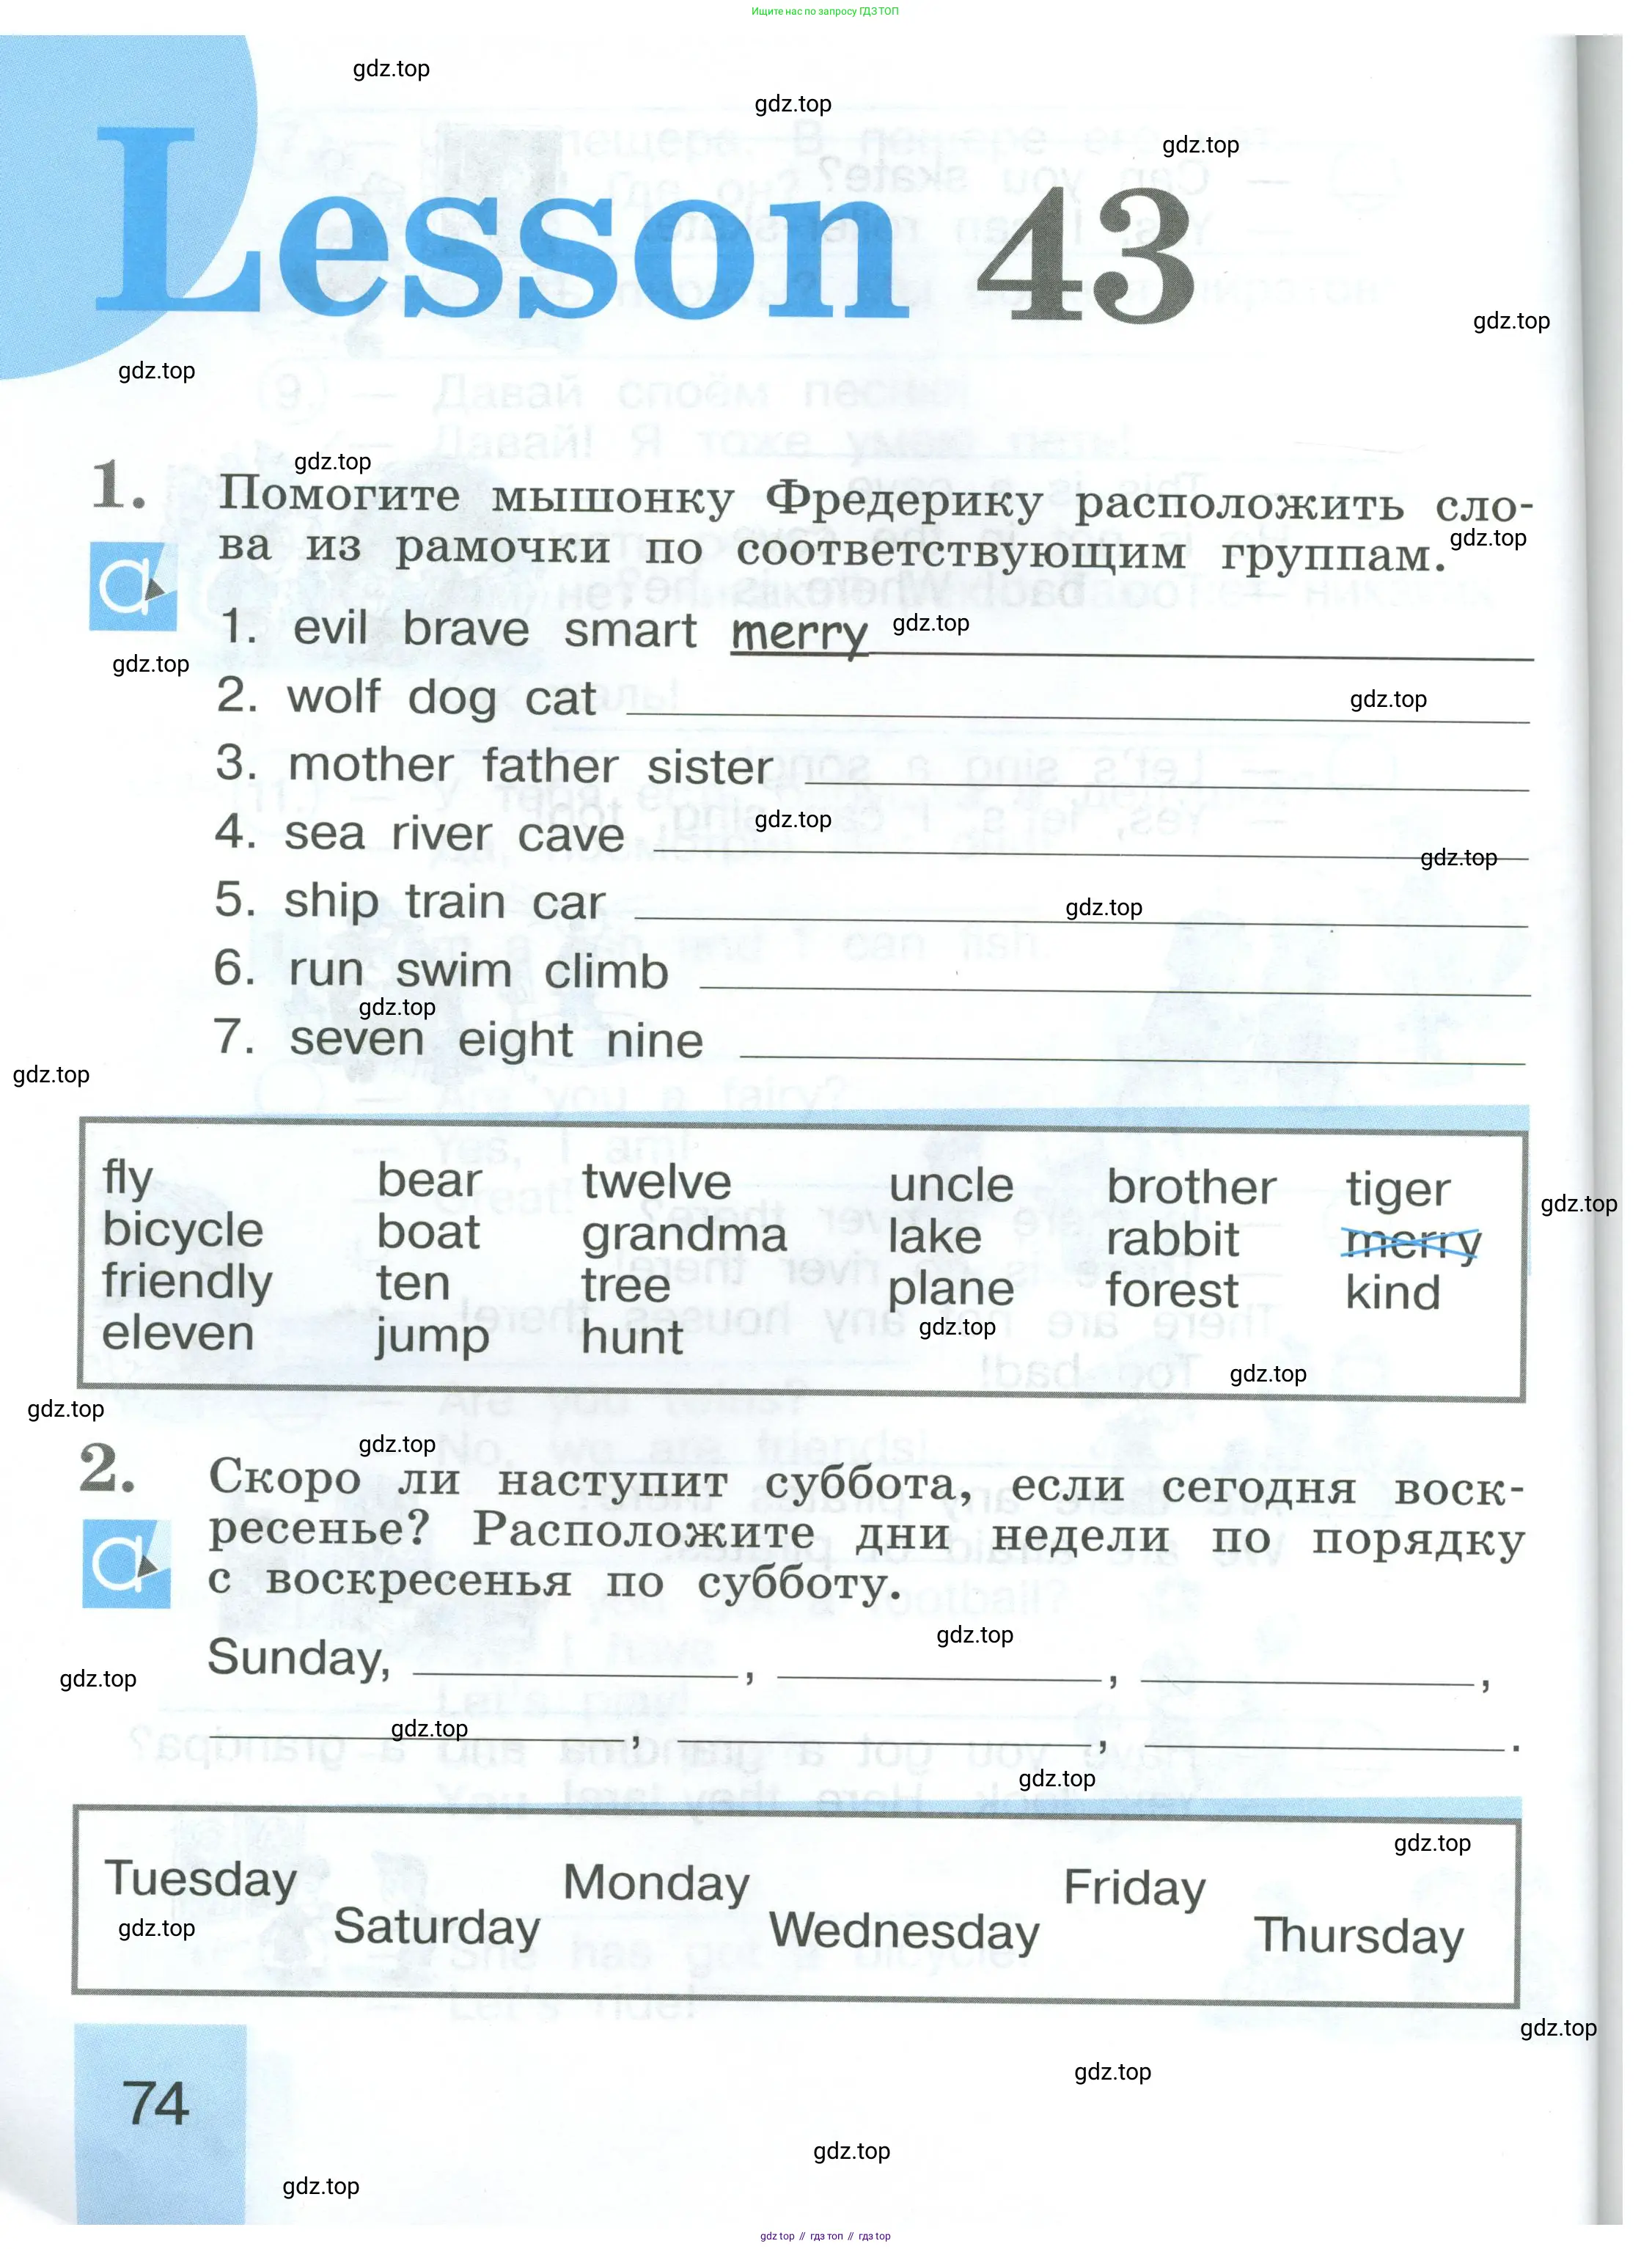 Ищите нас по запросу ГДЗ ТОП
gdz.top
gdz.top
gdz.top
Lesson 43
gdz.top
gdz.top
gdz.top
1. Помогите мышонку Фредерику расположить сло-
ва из рамочки по соответствующим группам.
gdz.top
a
1. evil brave smart merry
gdz.top
gdz.top
2. wolf dog cat
gdz.top
3. mother father sister
4. sea river cave
gdz.top
gdz.top
5. ship train car
gdz.top
6. run swim climb
gdz.top
7. seven eight nine
gdz.top
fly bear twelve uncle brother tiger
gdz.top
bicycle boat grandma lake rabbit merry
friendly ten tree plane forest kind
eleven jump hunt
gdz.top
gdz.top
gdz.top
gdz.top
2. Скоро ли наступит суббота, если сегодня воск-
ресенье? Расположите дни недели по порядку
a
с воскресенья по субботу.
gdz.top
Sunday, , , ,
gdz.top
gdz.top
, , .
gdz.top
gdz.top
Tuesday Monday Friday
Saturday Wednesday Thursday
gdz.top
gdz.top
gdz.top
74
gdz.top
gdz.top
gdz top // гдз топ // гдз top